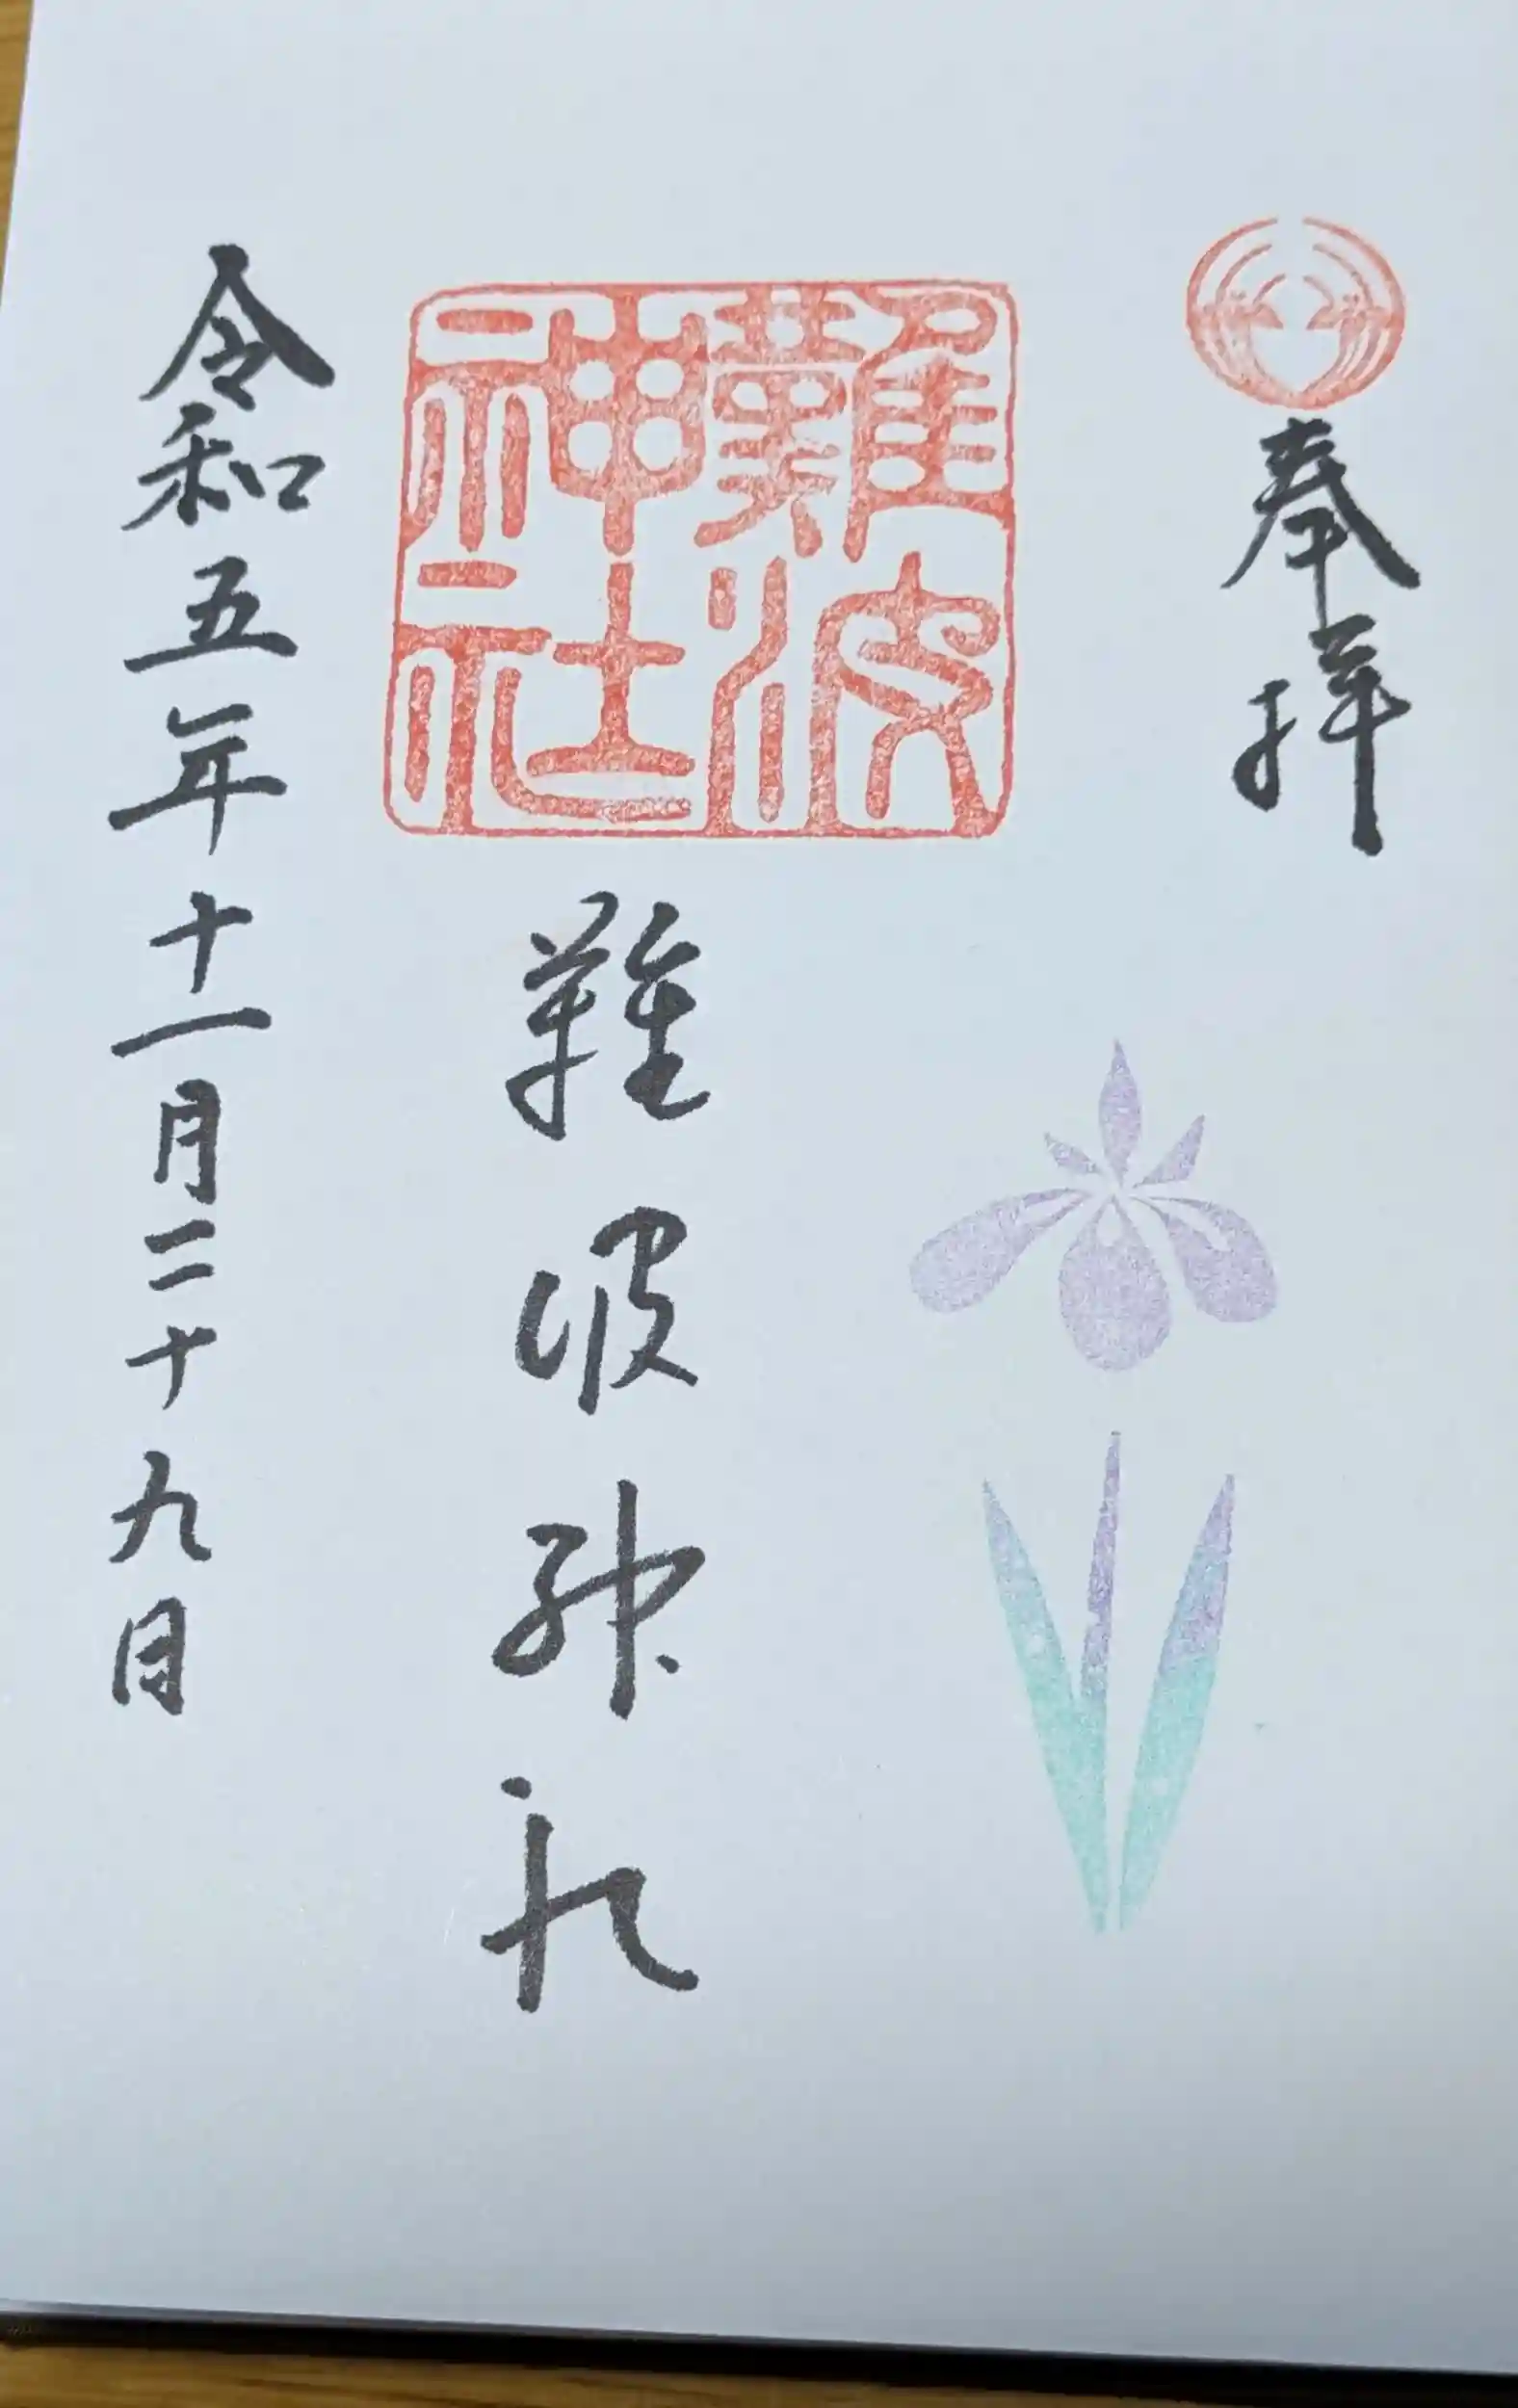 奉拝
難波
神社
難波神社
令和五年十一月二十九日